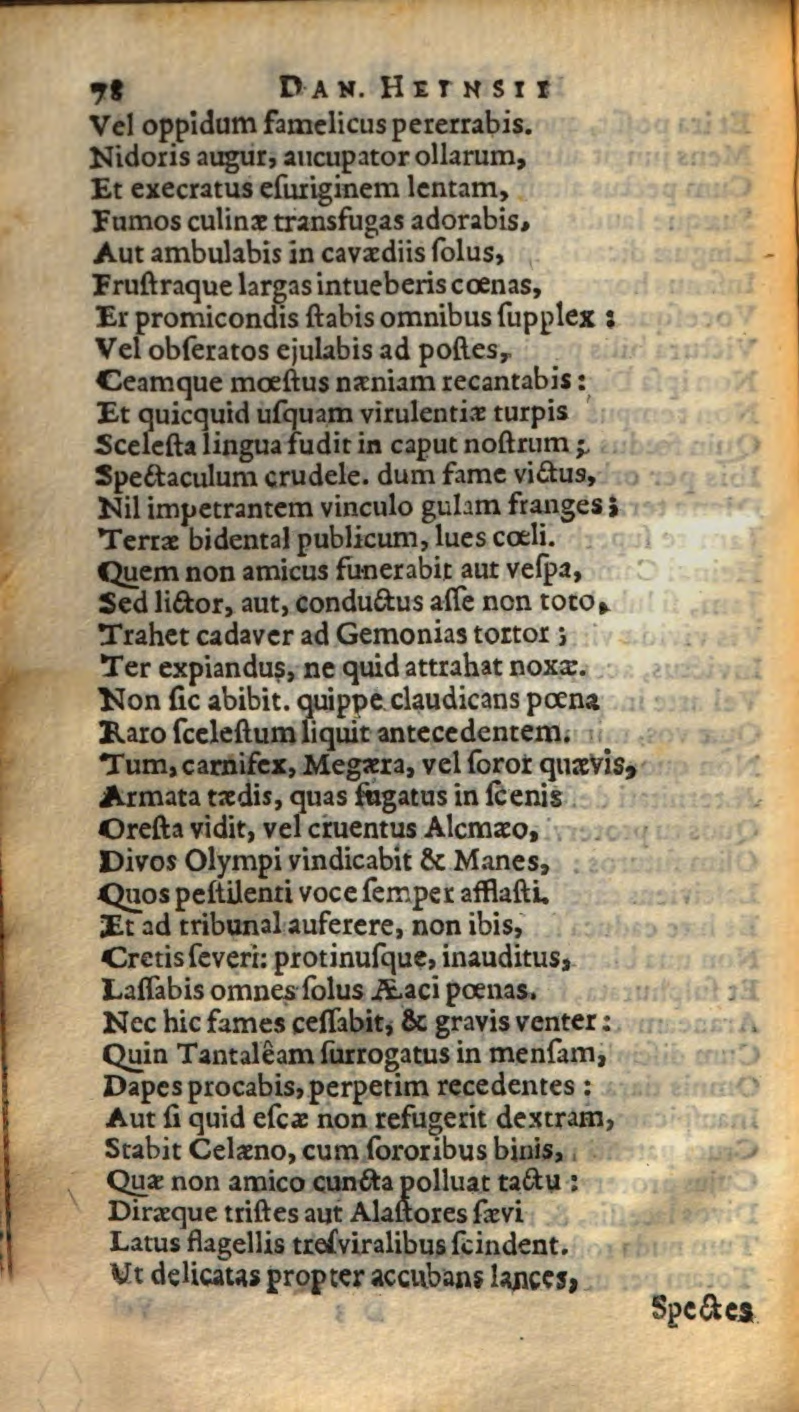 78 DAN. HEINSII
Vel oppidum famelicus pererrabis.
Nidoris augur, aucupator ollarum,
Et execratus eſuriginem lentam,
Fumos culinæ transfugas adorabis,
Aut ambulabis in cavædiis ſolus,
Fruſtraque largas intueberis cœnas,
Er promicondis ſtabis omnibus ſupplex :
Vel obſeratos ejulabis ad poſtes,
Ceamque mœſtus næniam recantabis :
Et quicquid uſquam virulentiæ turpis
Sceleſta lingua fudit in caput noſtrum ;
Spectaculum crudele. dum fame victus,
Nil impetrantem vinculo gulam franges ;
Terræ bidental publicum, lues cœli.
Quem non amicus funerabit aut veſpa,
Sed lictor, aut, conductus aſſe non toto,
Trahet cadaver ad Gemonias tortor ;
Ter expiandus, ne quid attrahat noxæ.
Non ſic abibit. quippe claudicans pœna
Raro ſceleſtum liquit antecedentem.
Tum, carnifex, Megæra, vel ſoror quævis,
Armata tædis, quas fugatus in ſcenis
Oreſta vidit, vel cruentus Alcmæo,
Divos Olympi vindicabit & Manes,
Quos peſtilenti voce ſemper afflaſti.
Et ad tribunal auferere, non ibis,
Cretis ſeveri: protinuſque, inauditus,
Laſſabis omnes ſolus Æaci pœnas.
Nec hic fames ceſſabit, & gravis venter :
Quin Tantalêam ſurrogatus in menſam,
Dapes procabis, perpetim recedentes :
Aut ſi quid eſcæ non refugerit dextram,
Stabit Celæno, cum ſororibus binis,
Quæ non amico cuncta polluat tactu :
Diræque triſtes aut Alaſtores ſævi
Latus flagellis treſviralibus ſcindent.
Ut delicatas propter accubans lances,
Spectes